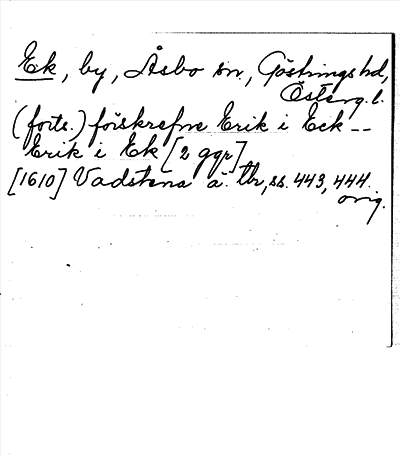 Ek, by, Åsbo sn., Göstrings hd,
Österg. l.
(forts.) förskrefne Erik i Eek --
Erik i Ek [2 ggr]
[1610] Vadstena ä. tb, ss. 443, 444.
orig.